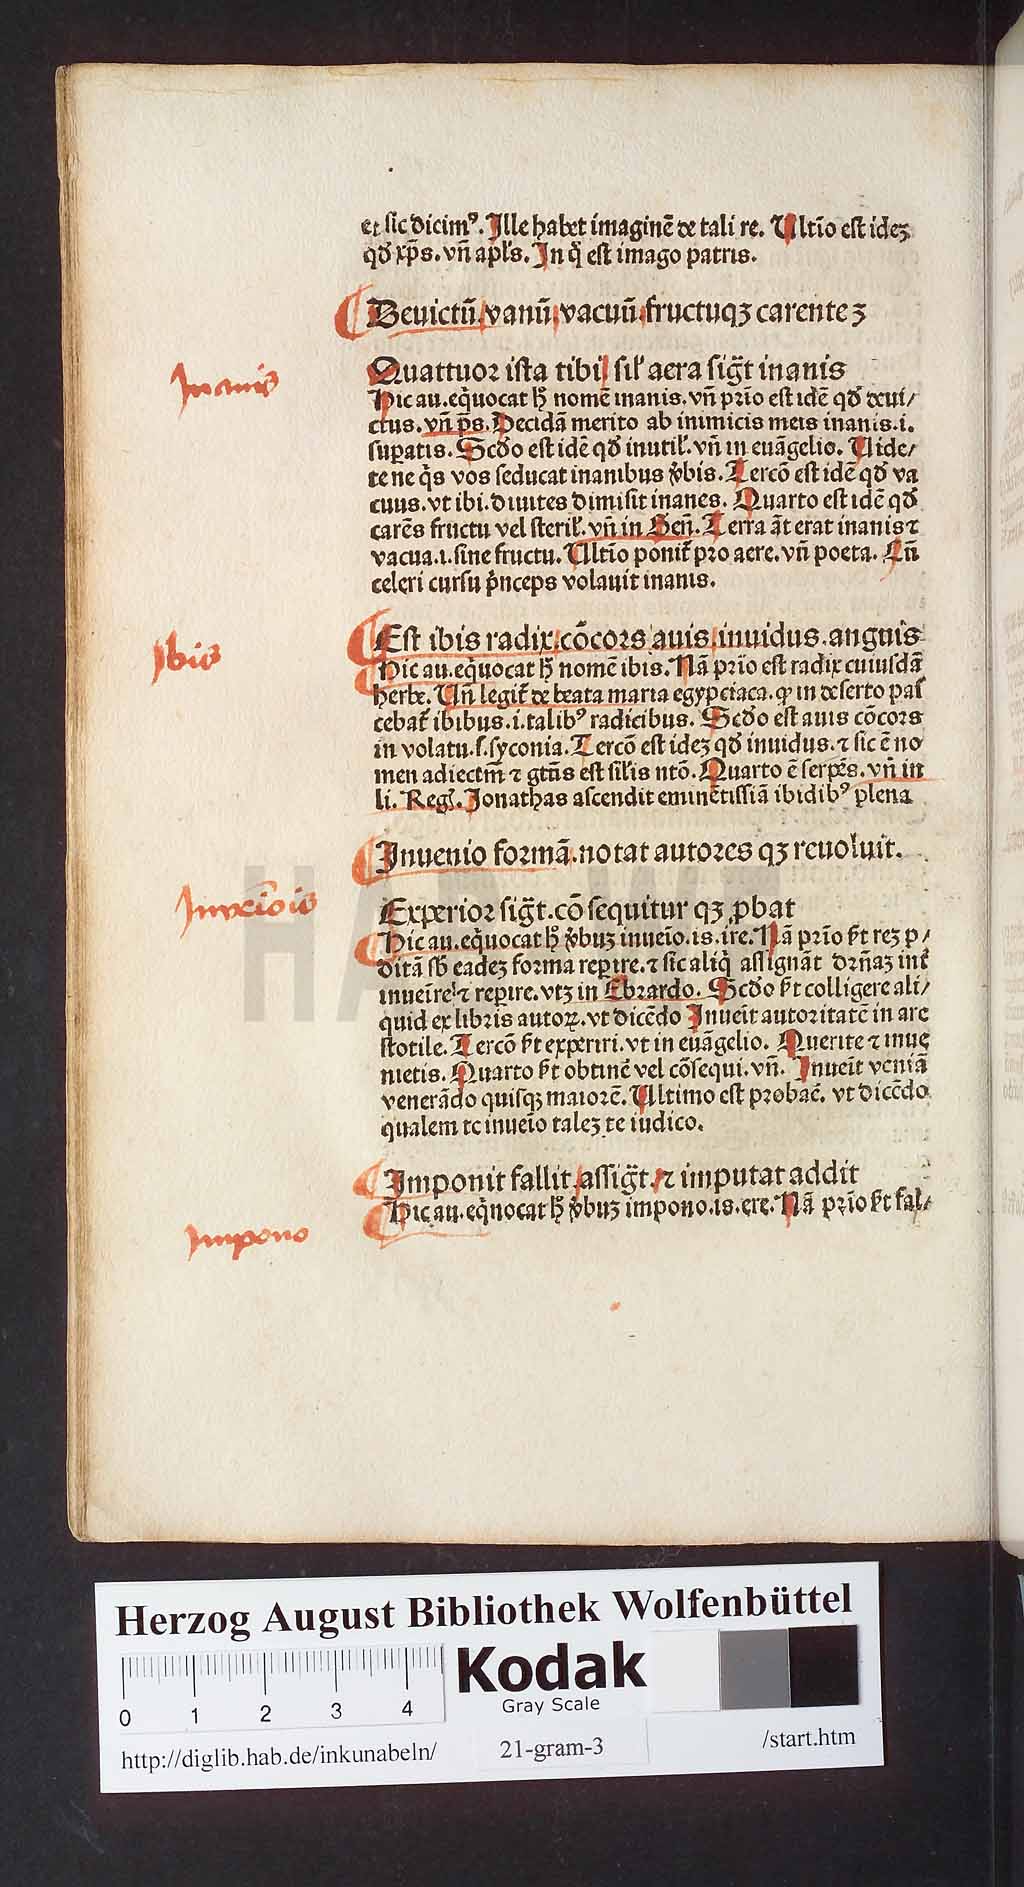 et sic dicim⁹. Ille habet imaginē de tali re. Ultīo est ideꝫ
qđ xp̄s. vñ apl's. In q̊ est imago patris.
Deuictū vanū vacuū fructuqꝫ carenteꝫ
Inanis
Quattuor ista tibi sil' aera sigt̄ inanis
Hic au. eq̊uocat h̄ nomē inanis. vñ prīo est idē qđ deui/
ctus. vñ p̄s. Decidā merito ab inimicis meis inanis .i.
supatis. Scđo est idē qđ inutil'. vñ in euāgelio. Uide/
te ne q̊s vos seducat inanibus v̓bis. Tercō est idē qđ va
cuus. vt ibi. diuites dimisit inanes. Quarto est idē qđ
carēs fructu vel steril'. vñ in Geñ. Terra āt erat inanis ⁊
vacua .i. sine fructu. Ultīo ponit̄ pro aere. vñ poeta. Cū
celeri cursu p̓nceps volauit inanis.
Ibis
Est ibis radix. cōcors auis inuidus. anguis
Hic au. eq̊uocat h̄ nomē ibis. Nā prīo est radix cuiusdā
herbe. Uñ legit̄ de beata maria egypciaca. ꝙ in deserto pas
cebat̄ ibibus .i. talib⁹ radicibus. Scđo est auis cōcors
in volatu. s. syconia. Tercō est ideꝫ qđ inuidus. ⁊ sic ē no
men adiectm̄ ⁊ gtñs est sil'is ntō. Quarto ē serpēs. vñ in
li. Reg. Jonathas ascendit eminētissiā ibidib⁹ plena
Inuenio formā. notat autores qꝫ reuoluit.
Experior sigt̄. cōsequitur qꝫ ꝓbat
Hic au. eq̊uocat h̄ v̓buꝫ inueīo. is. ire. Nā prīo s̄t reꝫ p/
ditā sb̄ eadeꝫ forma repire. ⁊ sic aliq̊ assignāt dr̄ñaꝫ int̄
inueīre ⁊ repire. vtꝫ in Ebrardo. Scđo s̄t colligere ali/
quid ex libris autoꝝ. vt dicēdo Inueīt autoritatē in are
stotile. Tercō s̄t experiri. vt in euāgelio. Querite ⁊ inue
nietis. Quarto s̄t obtinē vel cōsequi. vñ. Inueīt veniā
venerādo quisqꝫ maiorē. Ultimo est probaē. vt dicēdo
qualem te inueīo taleꝫ te iudico.
Imponit fallit assigt̄. ⁊ imputat addit
Impono
Hic au. eq̊uocat h̄ v̓buꝫ impono. is. ere. Nā prīo s̄t fal/
HAB WF
Herzog August Bibliothek Wolfenbüttel
0 1 2 3 4
Kodak
Gray Scale
http://diglib.hab.de/inkunabeln/
21-gram-3
/start.htm